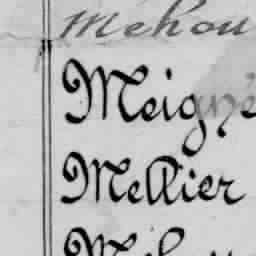 Mehou
Meigné
Mellier